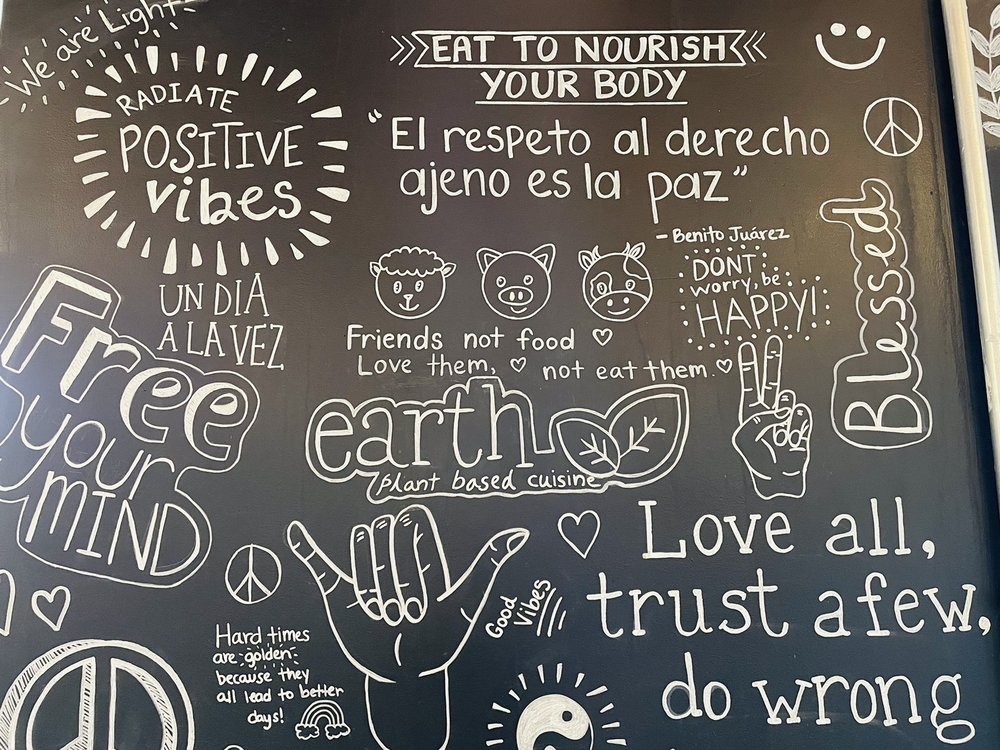 We are Light
RADIATE
POSITIVE
vibes
EAT TO NOURISH
YOUR BODY
"El respeto al derecho
ajeno es la paz"
- Benito Juárez
UN DIA
A LA VEZ
Free
your
MIND
Friends not food
Love them, not eat them.
DONT
worry, be
HAPPY!
Blessed
earth
plant based cuisine
Hard times
are golden
because they
all lead to better
days!
Good
Vibes
Love all,
trust a few,
do wrong